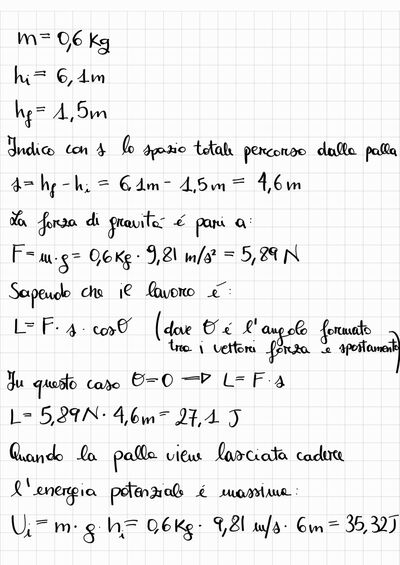 m = 0,6 Kg
hi = 6,1m
hf = 1,5m
Indico con s lo spazio totale percorso dalla palla
s = hf - hi = 6,1m - 1,5m = 4,6m
La forza di gravità é pari a:
F = m · g = 0,6Kg · 9,81 m/s² = 5,89N
Sapendo che il lavoro é:
L = F · s · cosθ (dove θ é l'angolo formato
tra i vettori forza e spostamento)
In questo caso θ=0 → L = F · s
L = 5,89N · 4,6m = 27,1 J
Quando la palla viene lasciata cadere
l'energia potenziale é massima:
Ui = m · g · hi = 0,6Kg · 9,81 m/s · 6m = 35,32J